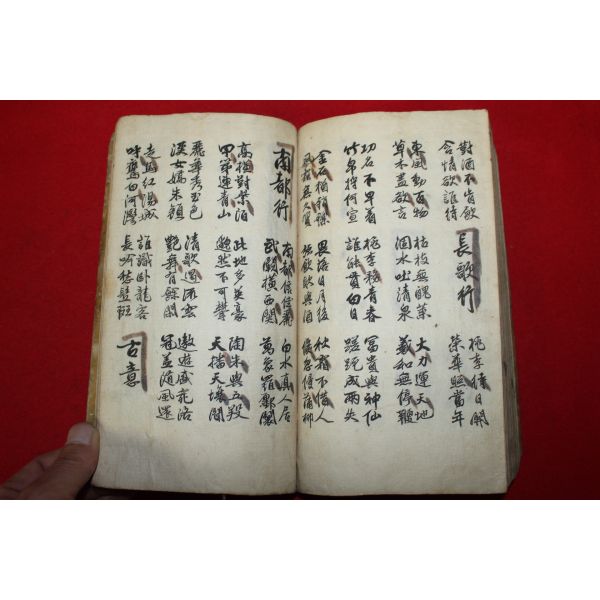 對酒不肯飲
含情欲誰待
長歌行
桃李待日開
榮華照當年
東風動百物
草木盡欲言
枯枝無醜葉
涸水吐清泉
大力運天地
羲和無停鞭
功名不早著
竹帛將何宣
桃李務青春
誰能貫白日
富貴與神仙
蹉跎成兩失
金石猶銷鑠
風霜無久質
畏落日月後
強飲歌與酒
秋霜不惜人
倏忽侵蒲柳
南都行
南都信佳麗
武闕橫西關
白水真人居
萬商羅鄽闤
高樓對紫陌
甲第連青山
此地多英豪
邈然不可攀
陶朱與五羖
天播天壤間
麗華秀玉色
漢女嬌朱顏
清歌遏流雲
艷舞有餘閑
遨遊盛宛洛
冠蓋隨風還
走馬紅陽城
呼鷹白河灣
誰識臥龍客
長吟愁鬢斑
古意